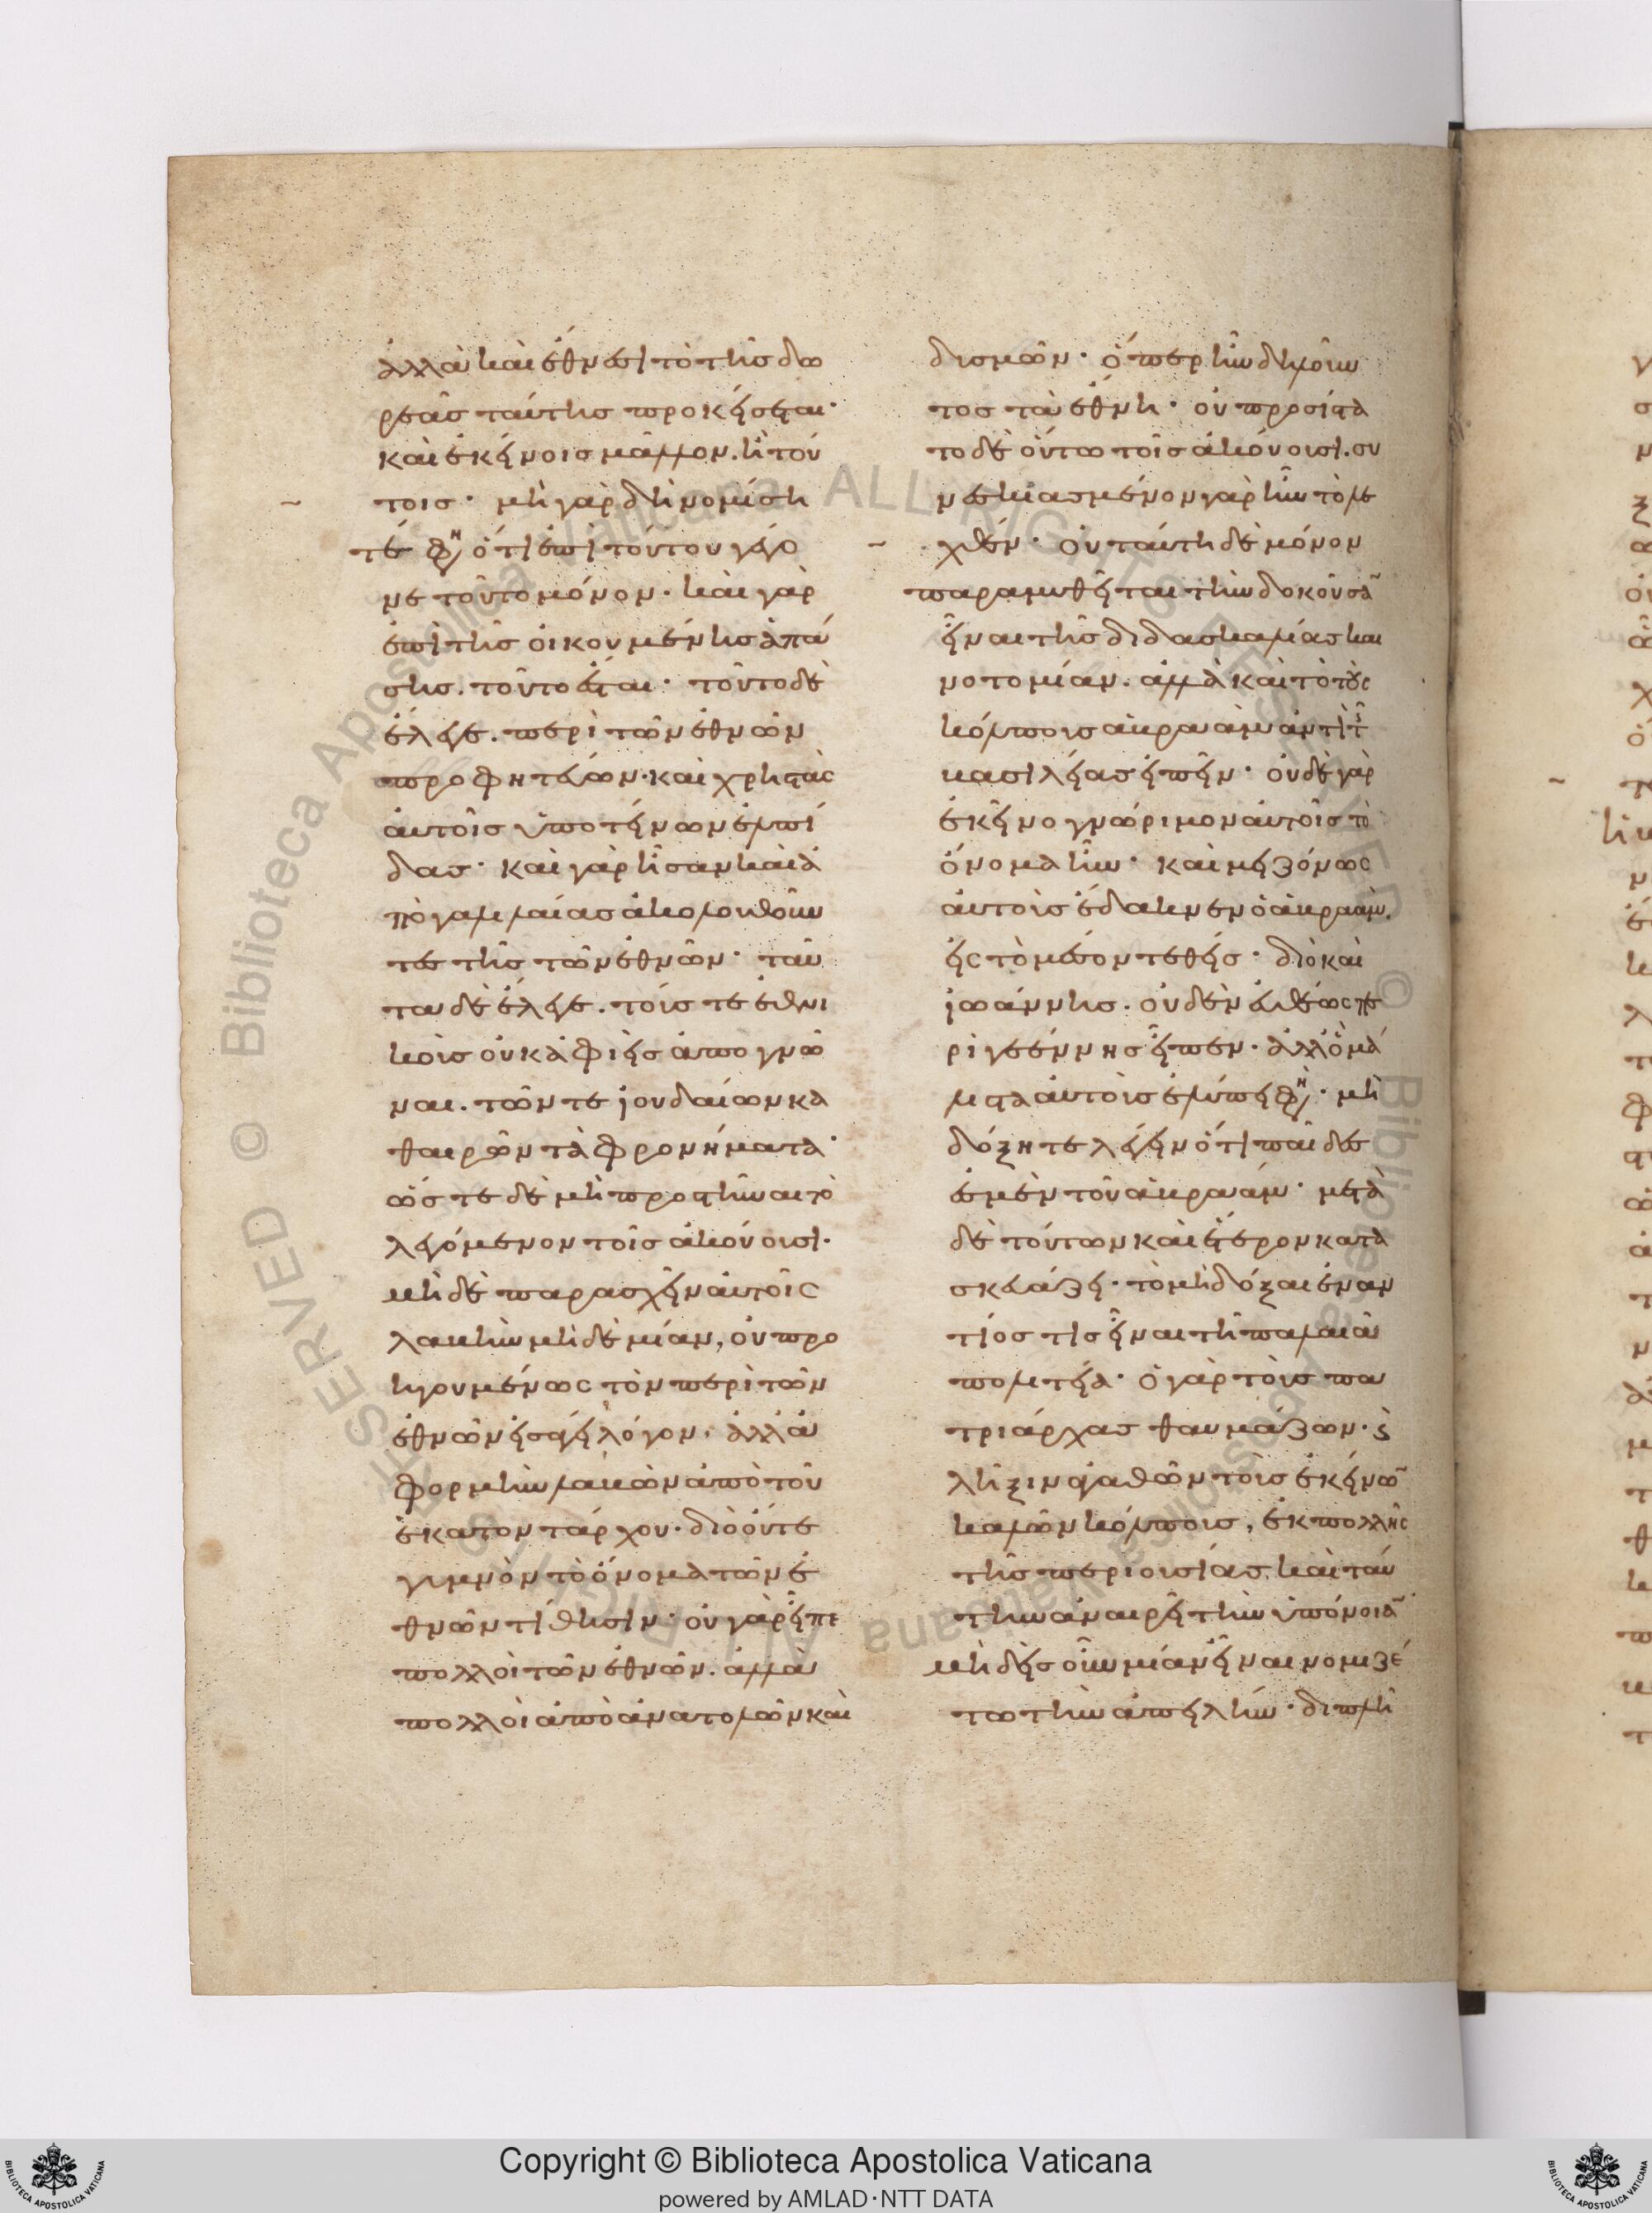 ἀλλὰ καὶ ἔθνεσι τὸ τῆς δω
ρεᾶς ταύτης προκείσεται·
καὶ ἐκείνοις μᾶλλον. ἢ τού
τοις· μὴ γὰρ δὴ νομίση
τέ φη ὅτι ἐπὶ τούτου γέγο
νε τοῦτο μόνον· καὶ γὰρ
ἐπὶ τῆς οἰκουμένης ἁπά
σης. τοῦτο ἔσται· τοῦτο δὲ
ἔλεγε. περὶ τῶν ἐθνῶν
προφητεύων· καὶ χρηστὰς
αὐτοῖς ὑποτείνων ἐλπί
δας· καὶ γὰρ ἦσαν καὶ ἀ
πὸ γαλιλαίας ἀκολουθοῦν
τες τῆς τῶν ἐθνῶν· ταῦ
τα δὲ ἔλεγε. τούς τε ἐθνι
κοὺς οὐκ ἀφιεὶς ἀπογνῶ
ναι. τῶν τε ἰουδαίων κα
θαιρῶν τὰ φρονήματα·
ὥστε δὲ μὴ προστῆναι τὸ
λεγόμενον τοῖς ἀκούουσι.
μὴ δὲ παρασχεῖν αὐτοῖς
λαβὴν μὴ δὲ μίαν, οὐ προ
ηγουμένως τὸν περὶ τῶν
ἐθνῶν εἰσάγει λόγον, ἀλλ' ἀ
φορμὴν λαβὼν ἀπὸ τοῦ
ἑκατοντάρχου· διὸ οὔτε
γυμνὸν τὸ ὄνομα τῶν ἐ
θνῶν τίθησιν· οὐ γὰρ εἶπε
πολλοὶ τῶν ἐθνῶν. ἀλλὰ
πολλοὶ ἀπὸ ἀνατολῶν καὶ
δυσμῶν· ὅπερ ἦν δηλοῦν
τος τὰ ἔθνη· οὐ προσίστα
το δὲ οὕτω τοῖς ἀκούουσι. συ
νεσκιασμένον γὰρ ἦν τὸ λε
χθέν· οὐ ταύτη δὲ μόνον
παραμυθεῖται τὴν δοκοῦσα̃
εἶναι τῆς διδασκαλίας και
νοτομίαν. ἀλλὰ καὶ τὸ τοὺς
κόλπους ἀβραὰμ ἀντὶ τ̑
βασιλείας εἰπεῖν· οὐδὲ γὰρ
ἐκεῖνο γνώριμον αὐτοῖς τὸ
ὄνομα ἦν· καὶ μειζόνως
αὐτοὺς ἔδακνεν ὁ ἀβραὰμ.
εἰς τὸ μέσον τεθείς· διὸ καὶ
ἰωάννης. οὐδὲν εὐθέως πε
ρὶ γεέννης εἶπεν· ἀλλ' ὃ μά
λιστα αὐτοὺς ἐλύπει φη· μὴ
δόξητε λέγειν ὅτι παῖδές
ἐσμὲν τοῦ ἀβραάμ· μετὰ
δὲ τούτων καὶ ἕτερον κατα
σκευάζει· τὸ μὴ δόξαι ἐναν
τίος τις εἶναι τῆ παλαιᾶ
πολιτεία· ὁ γὰρ τοὺς πα
τριάρχας θαυμάζων· ϛ
λῆξιν ἀγαθῶν τοὺς ἐκείνω̃
καλῶν κόλπους, ἐκ πολλῆς
τῆς περιουσίας καὶ ταύ
την ἀναιρεῖ τὴν ὑπόνοια̃
μὴ δεὶς οὖν μίαν εἶναι νομιζέ
τω τὴν ἀπειλήν· διπλῆ